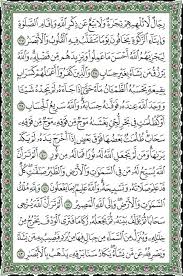 رِجَالٌ لَّا تُلْهِيهِمْ تِجَٰرَةٌ وَلَا بَيْعٌ عَن ذِكْرِ ٱللَّهِ وَإِقَامِ ٱلصَّلَوٰةِ
وَإِيتَآءِ ٱلزَّكَوٰةِ يَخَافُونَ يَوْمًا تَتَقَلَّبُ فِيهِ ٱلْقُلُوبُ وَٱلْأَبْصَٰرُ ٣٧
لِيَجْزِيَهُمُ ٱللَّهُ أَحْسَنَ مَا عَمِلُوا۟ وَيَزِيدَهُم مِّن فَضْلِهِۦ وَٱللَّهُ
يَرْزُقُ مَن يَشَآءُ بِغَيْرِ حِسَابٍ ٣٨ وَٱلَّذِينَ كَفَرُوٓا۟ أَعْمَٰلُهُمْ كَسَرَابٍۭ
بِقِيعَةٍ يَحْسَبُهُ ٱلظَّمْـَٔانُ مَآءً حَتَّىٰٓ إِذَا جَآءَهُۥ لَمْ يَجِدْهُ شَيْـًٔا
وَوَجَدَ ٱللَّهَ عِندَهُۥ فَوَفَّىٰهُ حِسَابَهُۥ وَٱللَّهُ سَرِيعُ ٱلْحِسَابِ ٣٩
أَوْ كَظُلُمَٰتٍ فِى بَحْرٍ لُّجِّىٍّ يَغْشَىٰهُ مَوْجٌ مِّن فَوْقِهِۦ مَوْجٌ مِّن فَوْقِهِۦ
سَحَابٌ ظُلُمَٰتٌۢ بَعْضُهَا فَوْقَ بَعْضٍ إِذَآ أَخْرَجَ يَدَهُۥ لَمْ يَكَدْ
يَرَىٰهَا وَمَن لَّمْ يَجْعَلِ ٱللَّهُ لَهُۥ نُورًا فَمَا لَهُۥ مِن نُّورٍ ٤٠ أَلَمْ تَرَ أَنَّ
ٱللَّهَ يُسَبِّحُ لَهُۥ مَن فِى ٱلسَّمَٰوَٰتِ وَٱلْأَرْضِ وَٱلطَّيْرُ صَٰٓفَّٰتٍ كُلٌّ
قَدْ عَلِمَ صَلَاتَهُۥ وَتَسْبِيحَهُۥ وَٱللَّهُ عَلِيمٌۢ بِمَا يَفْعَلُونَ ٤١ وَلِلَّهِ مُلْكُ
ٱلسَّمَٰوَٰتِ وَٱلْأَرْضِ وَإِلَى ٱللَّهِ ٱلْمَصِيرُ ٤٢ أَلَمْ تَرَ أَنَّ ٱللَّهَ يُزْجِى
سَحَابًا ثُمَّ يُؤَلِّفُ بَيْنَهُۥ ثُمَّ يَجْعَلُهُۥ رُكَامًا فَتَرَى ٱلْوَدْقَ يَخْرُجُ مِنْ
خِلَٰلِهِۦ وَيُنَزِّلُ مِنَ ٱلسَّمَآءِ مِن جِبَالٍ فِيهَا مِنۢ بَرَدٍ فَيُصِيبُ بِهِۦ
مَن يَشَآءُ وَيَصْرِفُهُۥ عَن مَّن يَشَآءُ يَكَادُ سَنَا بَرْقِهِۦ يَذْهَبُ بِٱلْأَبْصَٰرِ ٤٣